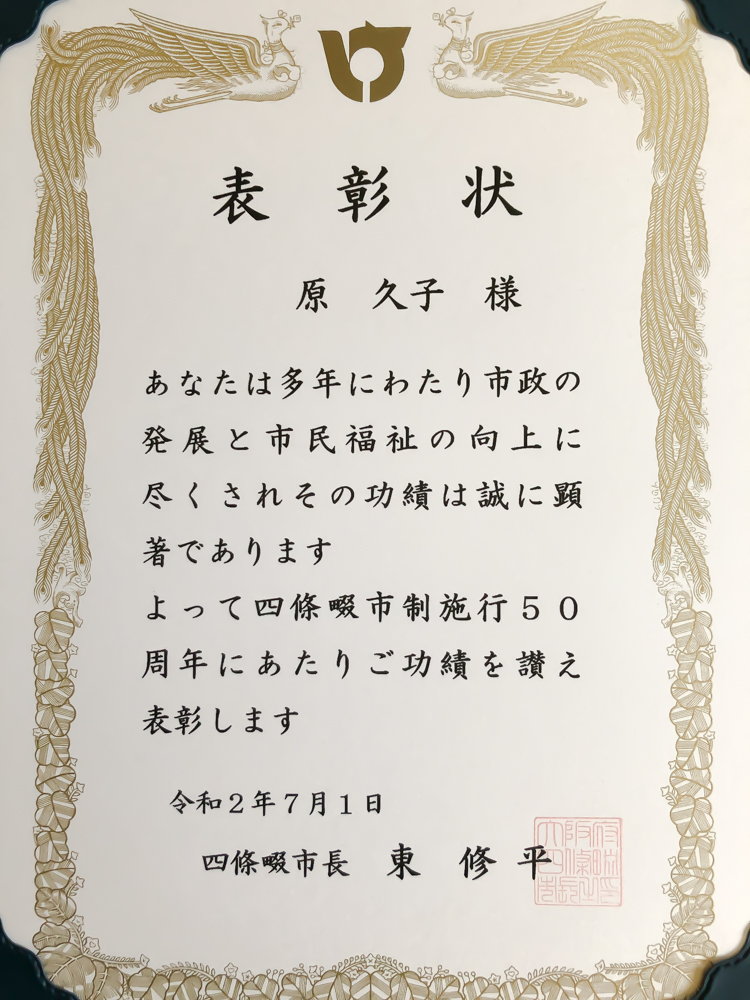 表彰状
原 久子 様
あなたは多年にわたり市政の
発展と市民福祉の向上に
尽くされその功績は誠に顕
著であります
よって四條畷市制施行５０
周年にあたりご功績を讃え
表彰します
令和２年７月１日
四條畷市長 東 修平